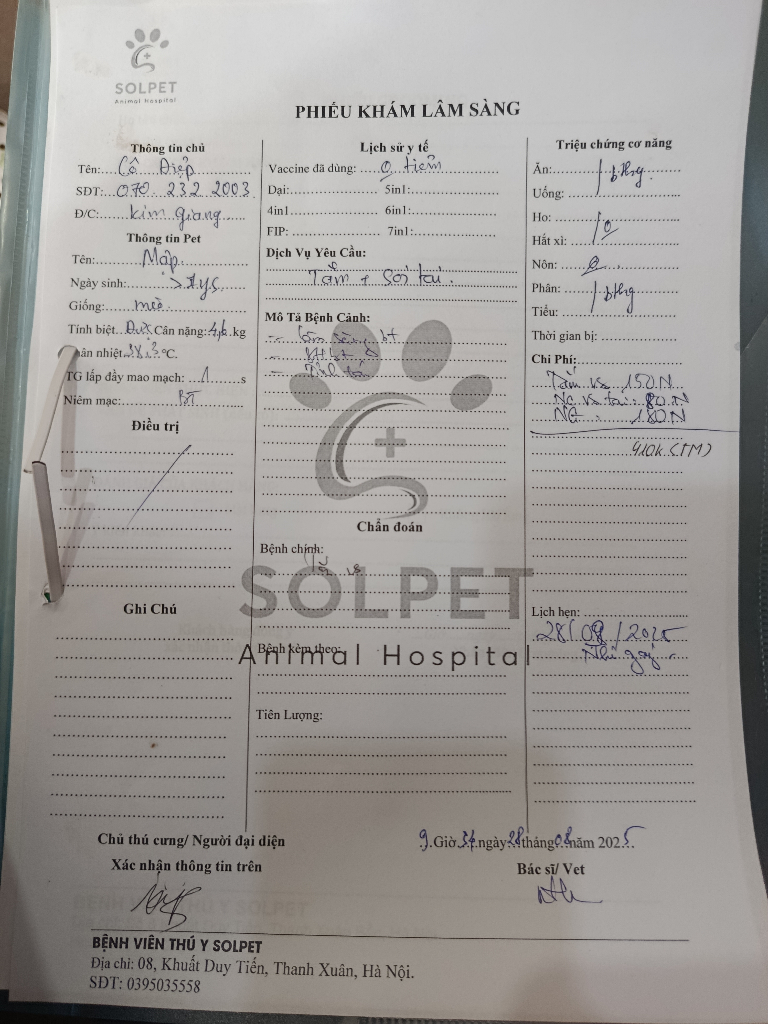 SOLPET
Animal Hospital
PHIẾU KHÁM LÂM SÀNG
Thông tin chủ
Tên: Cô Điệp
SĐT: 070 232 2003
Đ/C: Kim Giang
Thông tin Pet
Tên: Mập
Ngày sinh:
Giống: mèo
Tính biệt: Đực Cân nặng: 4,6 kg
Thân nhiệt 38,3 °C.
TG lấp đầy mao mạch: 1 s
Niêm mạc: BT
Điều trị
Ghi Chú
Lịch sử y tế
Vaccine đã dùng: 0 tiêm
Dại: 5in1:
4in1 6in1:
FIP: 7in1:
Dịch Vụ Yêu Cầu:
Tắm + Soi tai.
Mô Tả Bệnh Cảnh:
Chẩn đoán
Bệnh chính:
SOLPET
Bệnh kèm theo:
Animal Hospital
Tiên Lượng:
Triệu chứng cơ năng
Ăn: bthg
Uống:
Ho: 0
Hắt xì:
Nôn: 0
Phân: bthg
Tiểu:
Thời gian bị:
Chi Phí:
Tắm vs 150N
NC vs tai: 80N
NG: 180N
410k (TM)
Lịch hẹn:
28/08/2025
Chủ thú cưng/ Người đại diện
Xác nhận thông tin trên
9 Giờ 34 ngày 28 tháng 08 năm 2025
Bác sĩ/ Vet
BỆNH VIÊN THÚ Y SOLPET
Địa chỉ: 08, Khuất Duy Tiến, Thanh Xuân, Hà Nội.
SĐT: 0395035558